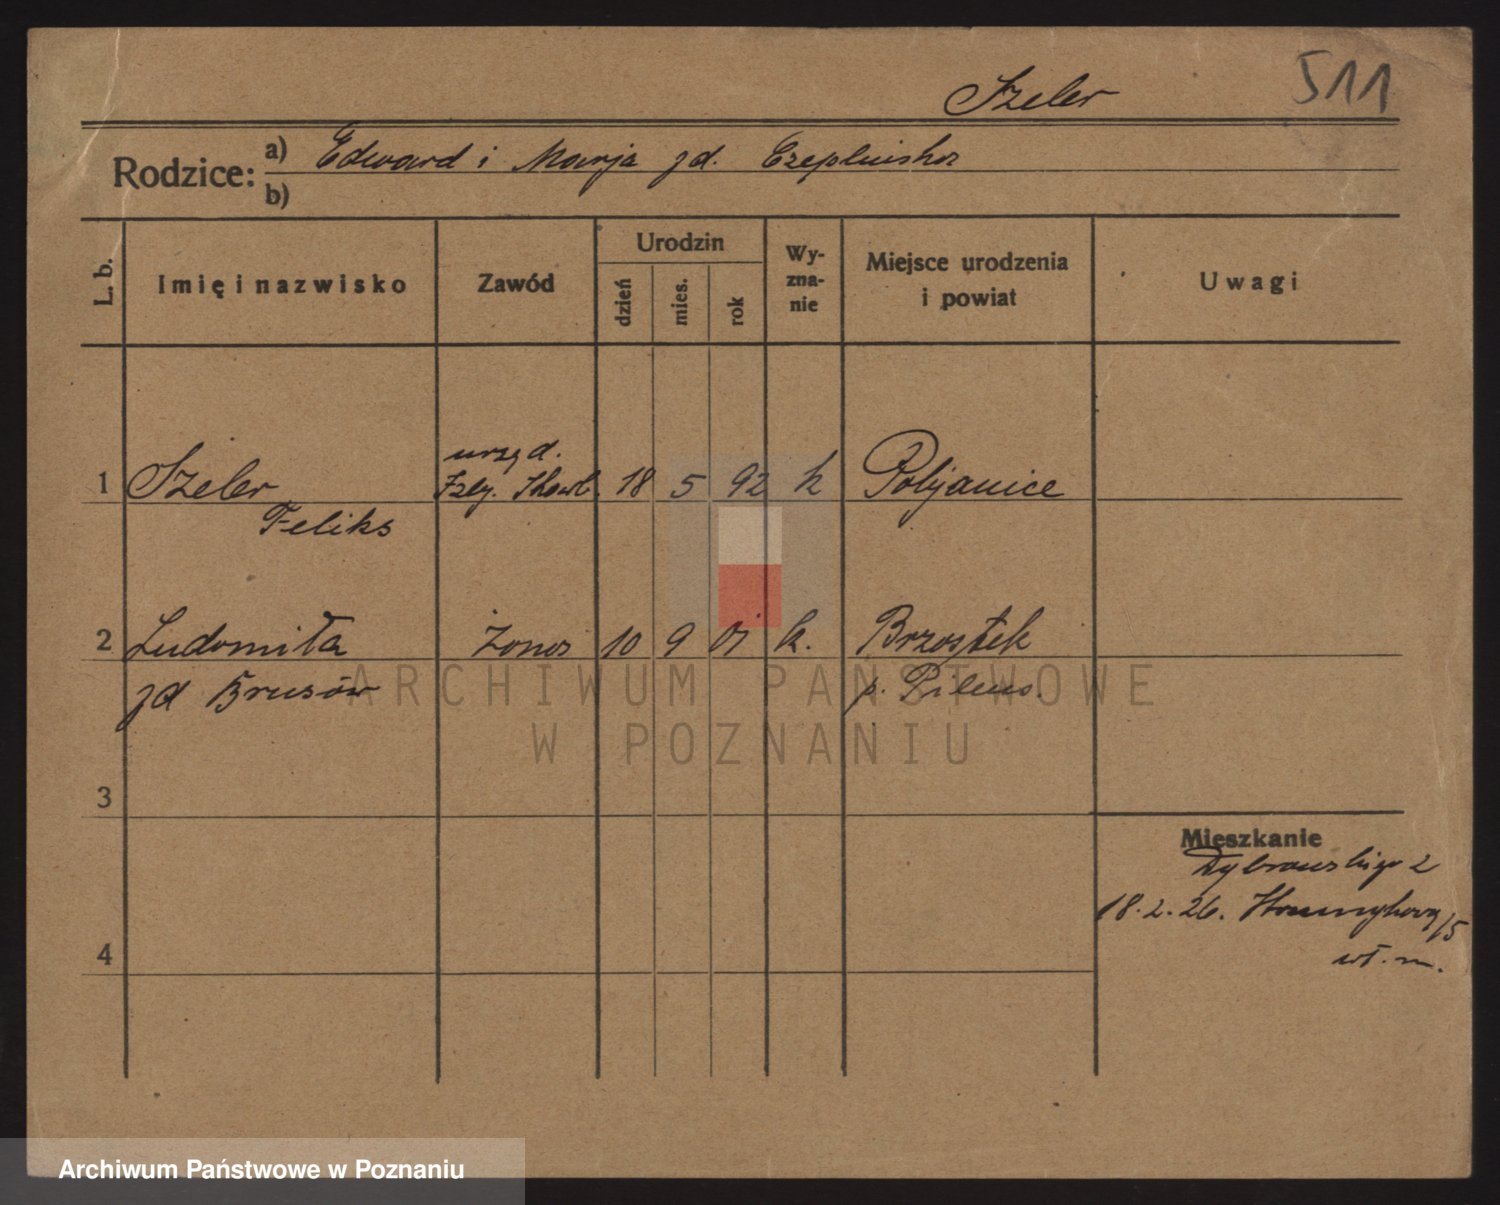 511
Szeler
Rodzice:
a) Edward i Marja zd. Czeplińska
b)
L. b.
Imię i nazwisko
Zawód
Urodzin
dzień
mies.
rok
Wy-
zna-
nie
Miejsce urodzenia
i powiat
Uwagi
urzęd.
1 Szeler 18 5 92 k Poljanice
Feliks
2 Ludomiła żona 10 9 01 k. Brzostek
zd Brusów p. Pilzno.
3
Mieszkanie
Dąbrowskiego 2
18.2.26.
4
wł. m.
ARCHIWUM PAŃSTWOWE
W POZNANIU
Archiwum Państwowe w Poznaniu